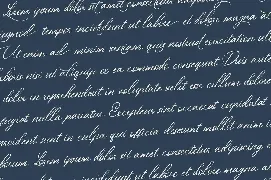 Lorem ipsum dolor sit amet consectetur
tempor incididunt ut labore et dolore magna a
Ut enim ad minim veniam quis nostrud exercitation ul
laboris nisi ut aliquip ex ea commodo consequat Duis aute
dolor in reprehenderit in voluptate velit esse cillum dolore
feugiat nulla pariatur Excepteur sint occaecat cupidatat
proident sunt in culpa qui officia deserunt mollit anim i
laborum Lorem ipsum dolor sit amet consectetur adipiscing
incididunt ut labore et dolore magna